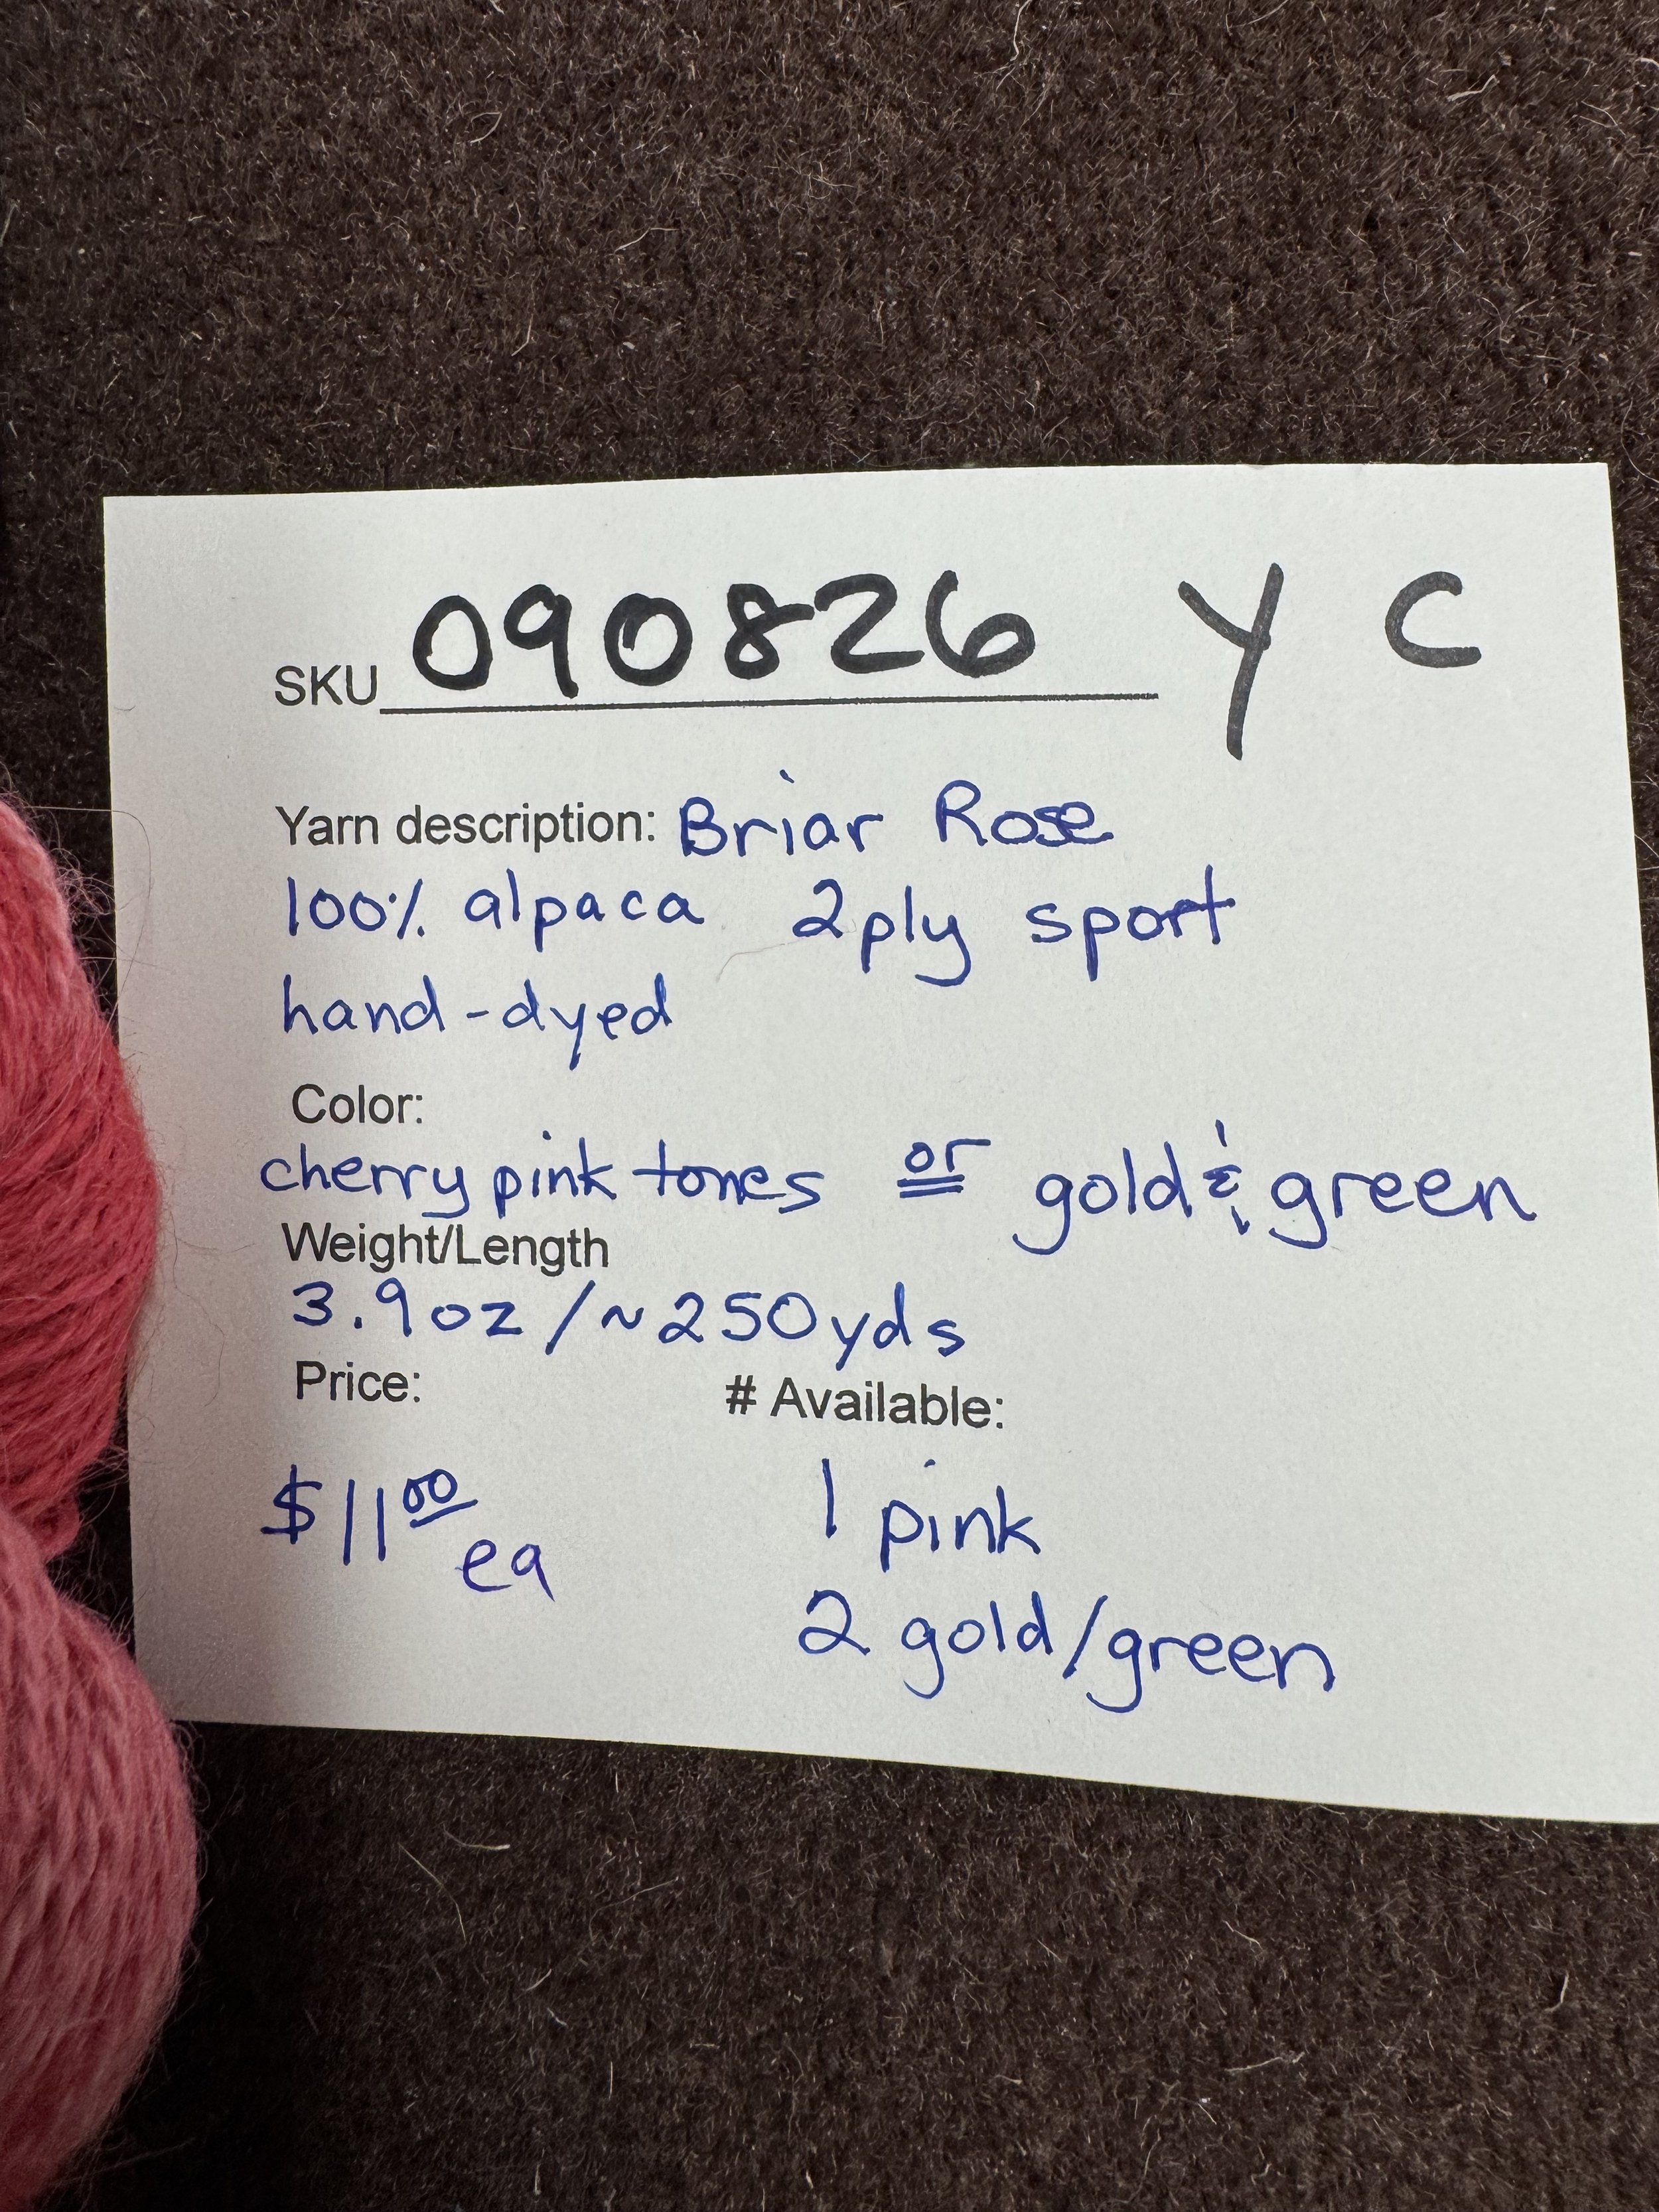 SKU 090826 Y C
Yarn description: Briar Rose
100% alpaca 2ply sport
hand-dyed
Color:
cherry pink tones or gold & green
Weight/Length
3.9oz/~250yds
Price: # Available:
$11.00 ea 1 pink
2 gold/green